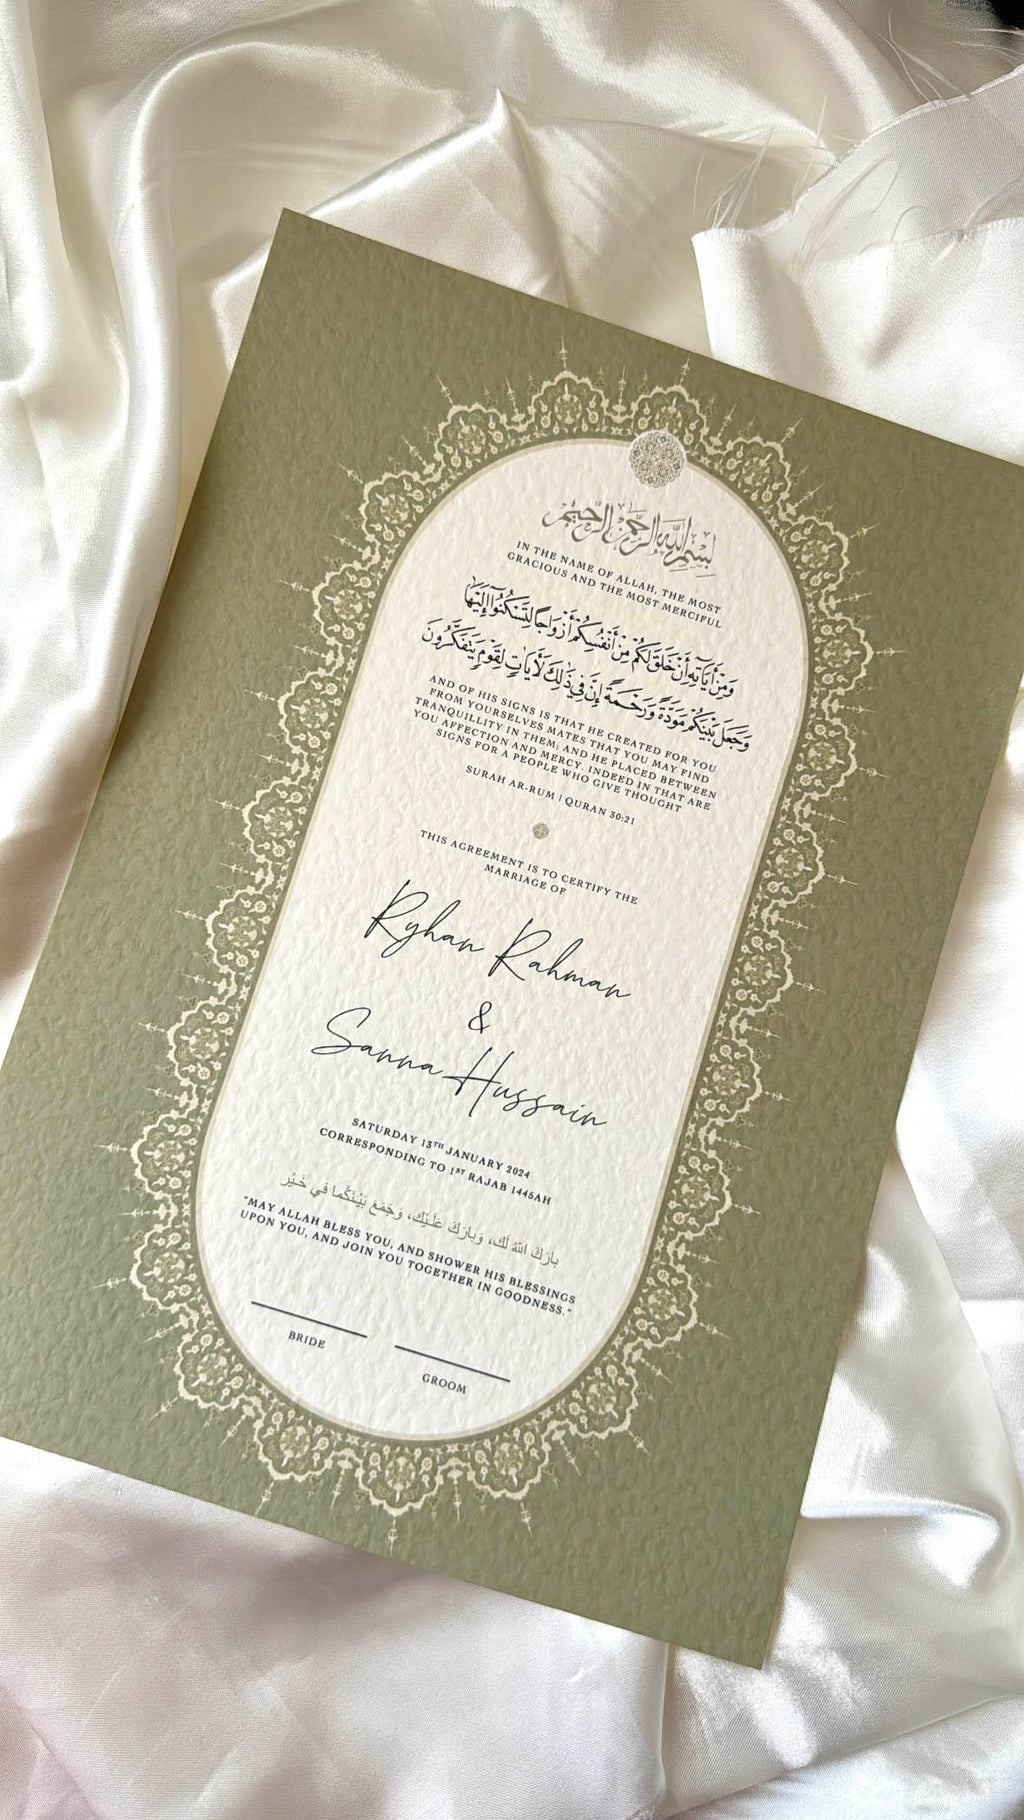 بِسْمِ اللَّهِ الرَّحْمَٰنِ الرَّحِيمِ
IN THE NAME OF ALLAH, THE MOST
GRACIOUS AND THE MOST MERCIFUL
وَمِنْ آيَاتِهِ أَنْ خَلَقَ لَكُم مِّنْ أَنفُسِكُمْ أَزْوَاجًا لِّتَسْكُنُوا إِلَيْهَا
وَجَعَلَ بَيْنَكُم مَّوَدَّةً وَرَحْمَةً إِنَّ فِي ذَٰلِكَ لَآيَاتٍ لِّقَوْمٍ يَتَفَكَّرُونَ
AND OF HIS SIGNS IS THAT HE CREATED FOR YOU
FROM YOURSELVES MATES THAT YOU MAY FIND
TRANQUILLITY IN THEM; AND HE PLACED BETWEEN
YOU AFFECTION AND MERCY. INDEED IN THAT ARE
SIGNS FOR A PEOPLE WHO GIVE THOUGHT
SURAH AR-RUM | QURAN 30:21
THIS AGREEMENT IS TO CERTIFY THE
MARRIAGE OF
Ryhan Rahman
&
Sanna Hussain
SATURDAY 13TH JANUARY 2024
CORRESPONDING TO 1ST RAJAB 1445AH
بَارَكَ اللهُ لَكَ، وَبَارَكَ عَلَيْكَ، وَجَمَعَ بَيْنَكُمَا فِي خَيْرٍ
"MAY ALLAH BLESS YOU, AND SHOWER HIS BLESSINGS
UPON YOU, AND JOIN YOU TOGETHER IN GOODNESS."
BRIDE
GROOM